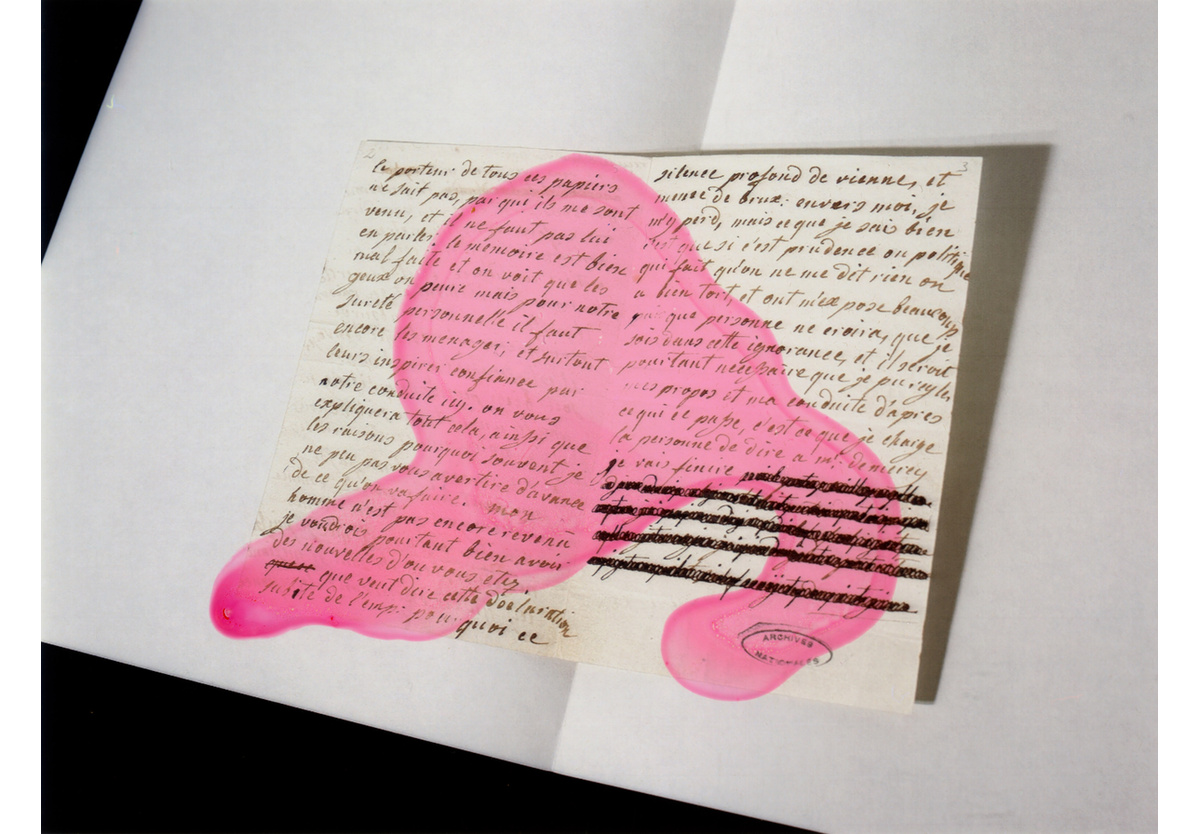 2
le porteur de tous ces papiers
ne sait pas, par qui ils me sont
venu, et il ne faut pas lui
en parler, le memoire est bien
mal faite et on voit que les
gueux on peure mais pour notre
sureté personnelle il faut
encore les menager, et surtout
leurs inspirer confiance par
notre conduite icy. on vous
expliquera tout cela, ainssi que
les raisons pourquoi souvent je
ne peu pas vous avertire d'avance
de ce qu'on va faire. mon
homme n'est pas encore revenu
je voudrois pourtant bien avoir
des nouvelles d'ou vous etez
que veut dire cette déclaration
subite de l'emp: pourquoi ce
3
silence profond de vienne, et
meme de brux: envers moi, je
m'y perd, mais ce que je sais bien
c'est que si c'est prudence ou politique
qui fait qu'on ne me dit rien on
a bien tort, et ont m'expose beaucoup
puisque personne ne croira, que je
sois dans cette ignorance, et il seroit
pourtant necessaire que je puregler
mes propos et ma conduite d'apres
ce qui ce passe, c'est ce que je charge
la personne de dire a mr. de mercy
je vais finire
ARCHIVES
NATIONALES